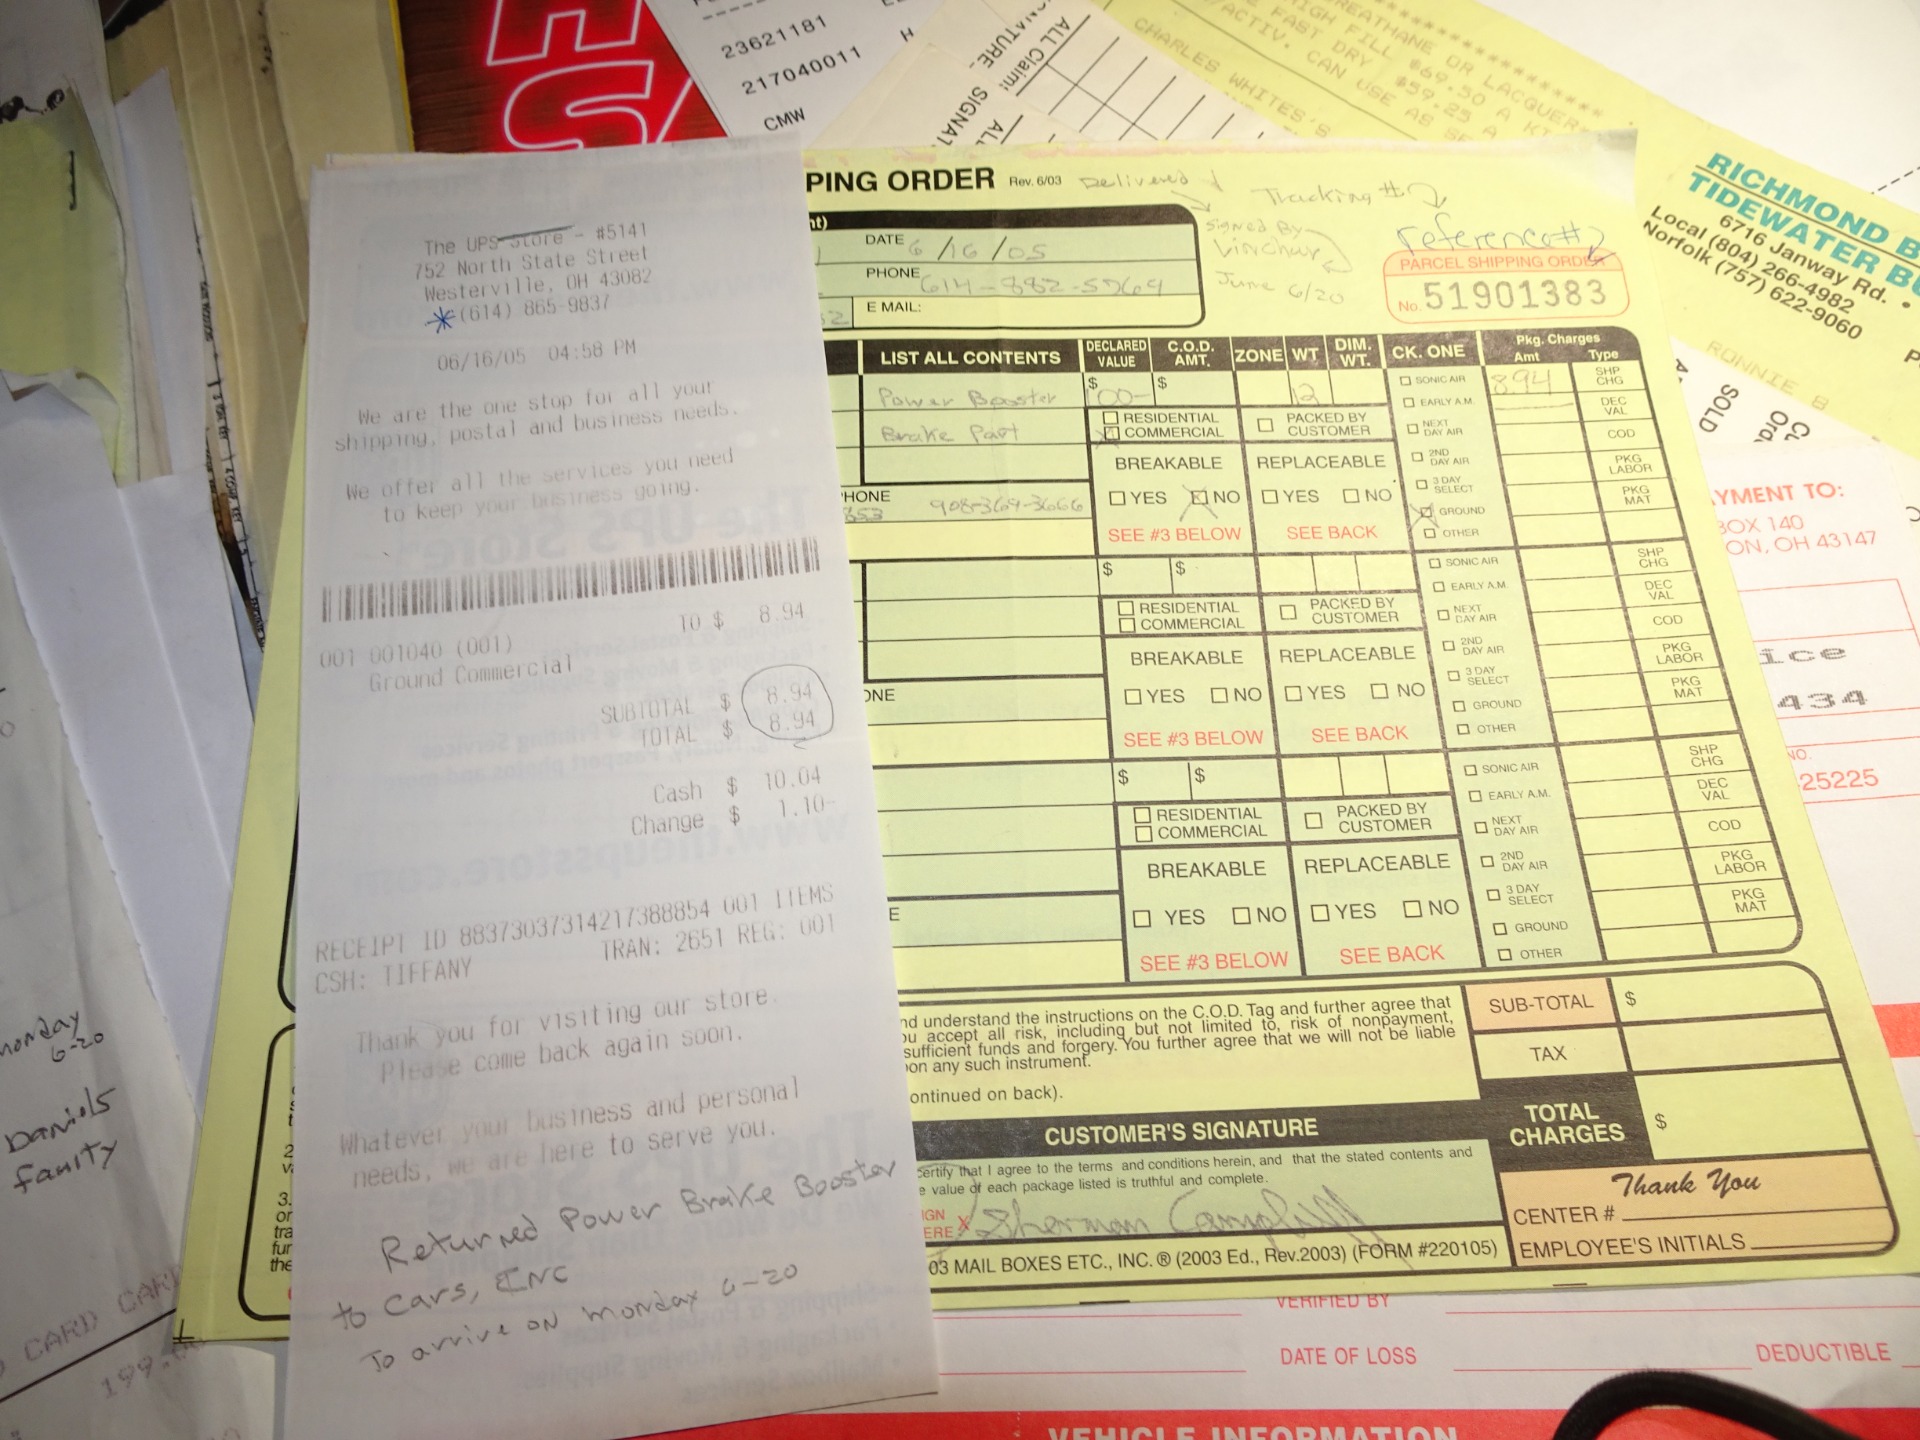 23621181
217040011
CMW
ALL Claim:
SIGNATURE:
CHARLES WHITES'S
RICHMOND B
TIDEWATER BU
6716 Janway Rd. •
Local (804) 266-4982
Norfolk (757) 622-9060
RONNIE B
SOLD
The UPS Store - #5141
752 North State Street
Westerville, OH 43082
*(614) 865-9837
06/16/05 04:58 PM
We are the one stop for all your
shipping, postal and business needs.
We offer all the services you need
to keep your business going.
TO $ 8.94
001 001040 (001)
Ground Commercial
SUBTOTAL $ 8.94
TOTAL $ 8.94
Cash $ 10.04
Change $ 1.10-
RECEIPT ID 88373037314217388854 001 ITEMS
CSH: TIFFANY TRAN: 2651 REG: 001
Thank you for visiting our store.
Please come back again soon.
Whatever your business and personal
needs, we are here to serve you.
Returned Power Brake Booster
to Cars, INC
To arrive on Monday 6-20
PING ORDER Rev. 6/03
Delivered
Tracking #?
Signed By
June 6/20
reference#?
PARCEL SHIPPING ORDER
No. 51901383
DATE 6/16/05
PHONE
E MAIL:
LIST ALL CONTENTS DECLARED VALUE C.O.D. AMT. ZONE WT DIM. WT. CK. ONE Pkg. Charges Amt Type
Power Booster $100- $ 12 8.94
Brake Part
RESIDENTIAL
COMMERCIAL
PACKED BY CUSTOMER
BREAKABLE REPLACEABLE
YES NO YES NO
SEE #3 BELOW SEE BACK
HONE 908-369-3666
SONIC AIR
EARLY A.M.
NEXT DAY AIR
2ND DAY AIR
3 DAY SELECT
GROUND
OTHER
SHP CHG
DEC VAL
COD
PKG LABOR
PKG MAT
$ $
RESIDENTIAL
COMMERCIAL
PACKED BY CUSTOMER
BREAKABLE REPLACEABLE
YES NO YES NO
SEE #3 BELOW SEE BACK
ONE
SONIC AIR
EARLY A.M.
NEXT DAY AIR
2ND DAY AIR
3 DAY SELECT
GROUND
OTHER
SHP CHG
DEC VAL
COD
PKG LABOR
PKG MAT
$ $
RESIDENTIAL
COMMERCIAL
PACKED BY CUSTOMER
BREAKABLE REPLACEABLE
YES NO YES NO
SEE #3 BELOW SEE BACK
E
SONIC AIR
EARLY A.M.
NEXT DAY AIR
2ND DAY AIR
3 DAY SELECT
GROUND
OTHER
SHP CHG
DEC VAL
COD
PKG LABOR
PKG MAT
nd understand the instructions on the C.O.D. Tag and further agree that
ou accept all risk, including but not limited to, risk of nonpayment,
sufficient funds and forgery. You further agree that we will not be liable
on any such instrument.
ontinued on back).
SUB-TOTAL $
TAX
TOTAL CHARGES $
CUSTOMER'S SIGNATURE
certify that I agree to the terms and conditions herein, and that the stated contents and
e value of each package listed is truthful and complete.
IGN
ERE X Sherman Campbell
03 MAIL BOXES ETC., INC. ® (2003 Ed., Rev.2003) (FORM #220105)
Thank You
CENTER #
EMPLOYEE'S INITIALS
YMENT TO:
BOX 140
ON, OH 43147
ice
434
NO.
25225
VERIFIED BY
DATE OF LOSS DEDUCTIBLE
VEHICLE INFORMATION
Monday
6-20
Daniels
CARD